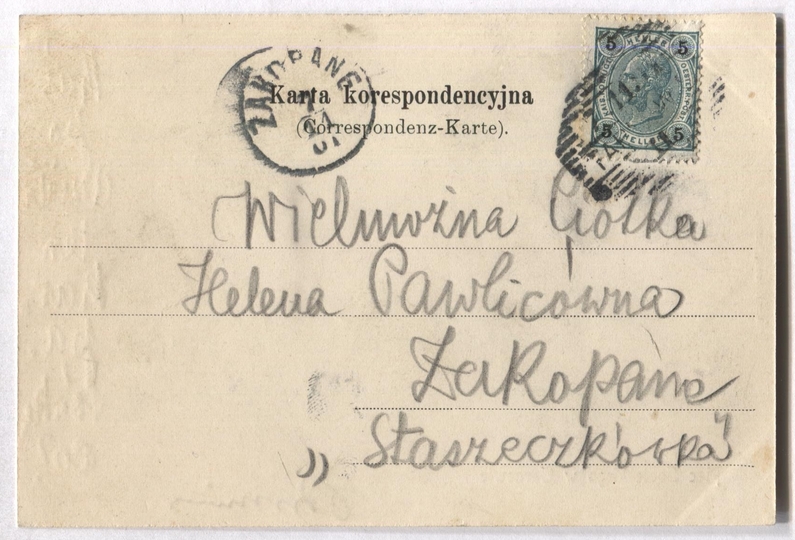 ZAKOPANE
Karta korespondencyjna
(Correspondenz-Karte).
5 HELLER 5
5 HELLER 5
Wielmożna Ciotka
Helena Pawlicówna
Zakopane
„Staszeczkówka”